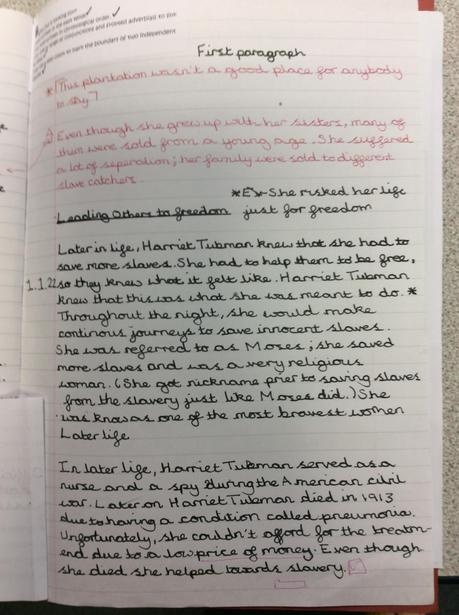 events in chronological order. ✓
range of conjunctions and fronted adverbials to link
to learn the boundary of two independent
First paragraph
* [This plantation wasn't a good place for anybody
to stay]
Even though she grew up with her sisters, many of
them were sold from a young age. She suffered
a lot of seperation; her family were sold to different
slave catchers
* She risked her life
Leading Others to freedom just for freedom
Later in life, Harriet Tubman knew that she had to
save more slaves. She had to help them to be free,
1.1.22 so they knew what it felt like. Harriet Tubman
knew that this was what she was meant to do. *
Throughout the night, she would make
continous journeys to save innocent slaves.
She was referred to as Moses; she saved
more slaves and was a very religious
woman. (She got nickname prier to saving slaves
from the slavery just like Moses did.) She
was know as one of the most bravest women
Later life
In later life, Harriet Tubman served as a
nurse and a spy during the American civil
war. Later on Harriet Tubman died in 1913
due to having a condition called pneumonia.
Unfortunately, she couldn't afford for the treatm-
end due to a low price of money. Even though
she died she helped towards slavery.